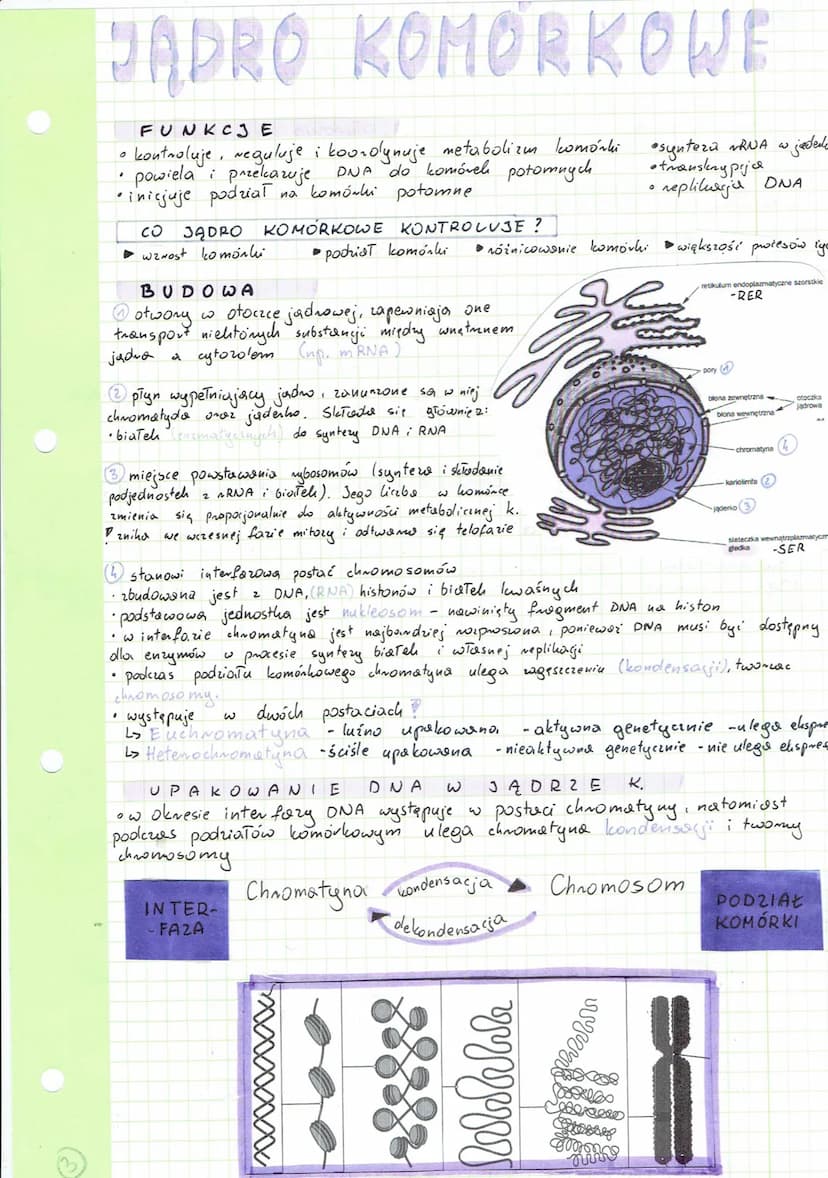 JĄDRO KOMÓRKOWE
FUNKCJE
• kontroluje, reguluje i koordynuje metabolizm komórki
• powiela i przekazuje DNA do komórek potomnych
• inicjuje podział na komórki potomne
• synteza rRNA w jąderk
• transkrypcja
• replikacja DNA
CO JĄDRO KOMÓRKOWE KONTROLUJE?
▶ wzrost komórki ▶ podział komórki ▶ różnicowanie komórki ▶ większość procesów życ
BUDOWA
① otwory w otoczce jądrowej, zapewniają one
transport niektórych substancji między wnętrzem
jądra a cytozolem (np. mRNA)
② płyn wypełniający jądro, zanurzone są w niej
chromatyda oraz jąderko. Składa się głównie z:
• białek (enzymatycznych) do syntezy DNA i RNA
③ miejsce powstawania rybosomów (synteza i składanie
podjednostek z rRNA i białek). Jego liczba w komórce
zmienia się proporcjonalnie do aktywności metabolicznej k.
! znika we wczesnej fazie mitozy i odtwarza się telofazie
retikulum endoplazmatyczne szorstkie
-RER
pory ①
błona zewnętrzna
błona wewnętrzna
otoczka
jądrowa
chromatyna ④
kariolimfa ②
jąderko ③
siateczka wewnątrzplazmatyczn
gładka -SER
④ stanowi interfazową postać chromosomów
• zbudowana jest z DNA, (RNA) histonów i białek kwaśnych
• podstawową jednostką jest nukleosom - nawinięty fragment DNA na histon
• w interfazie chromatyna jest najbardziej rozproszona, ponieważ DNA musi być dostępny
dla enzymów w procesie syntezy białek i własnej replikacji
• podczas podziału komórkowego chromatyna ulega zagęszczeniu (kondensacji), tworząc
chromosomy.
• występuje w dwóch postaciach!
↳ Euchromatyna - luźno upakowana - aktywna genetycznie - ulega ekspre
↳ Heterochromatyna - ściśle upakowana - nieaktywna genetycznie - nie ulega ekspres
UPAKOWANIE DNA W JĄDRZE K.
• w okresie interfazy DNA występuje w postaci chromatyny, natomiast
podczas podziałów komórkowym ulega chromatyna kondensacji i tworzy
chromosomy
INTER-
-FAZA
Chromatyna
kondensacja
dekondensacja
Chromosom
PODZIAŁ
KOMÓRKI
3